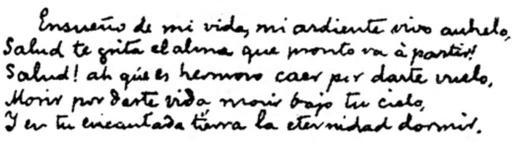 Ensueño de mi vida, mi ardiente vivo anhelo,
Salud te grita el alma que pronto va á partir!
Salud! ah qúe es hermoso caer por darte vuelo,
Morir por darte vida morir bajo tu cielo,
Y en tu encantada tierra la eternidad dormir.